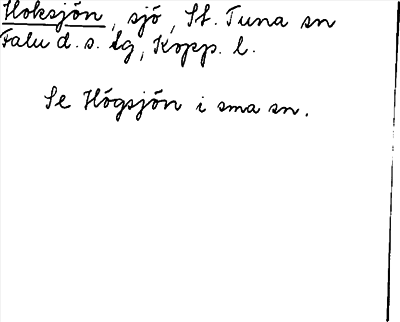 Hoksjön, sjö, St. Tuna sn
Falu d. s. tg, Kopp. l.
Se Högsjön i sma sn.